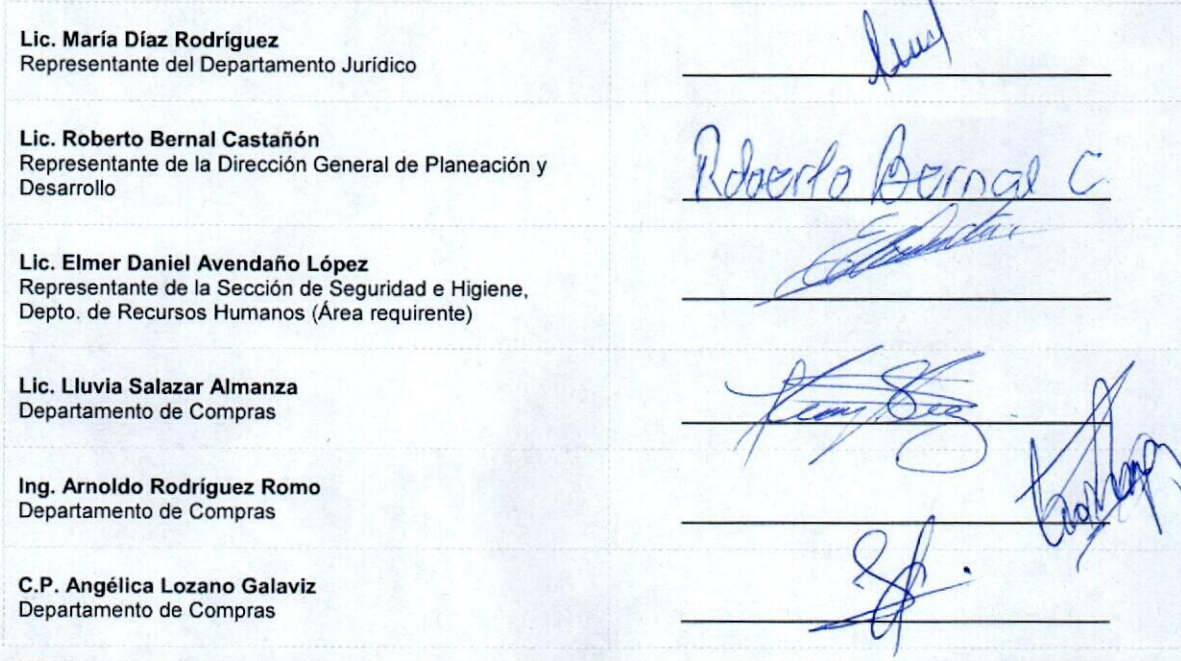 Lic. María Díaz Rodríguez
Representante del Departamento Jurídico
Lic. Roberto Bernal Castañón
Representante de la Dirección General de Planeación y
Desarrollo
Roberto Bernal C.
Lic. Elmer Daniel Avendaño López
Representante de la Sección de Seguridad e Higiene,
Depto. de Recursos Humanos (Área requirente)
Lic. Lluvia Salazar Almanza
Departamento de Compras
Ing. Arnoldo Rodríguez Romo
Departamento de Compras
C.P. Angélica Lozano Galaviz
Departamento de Compras